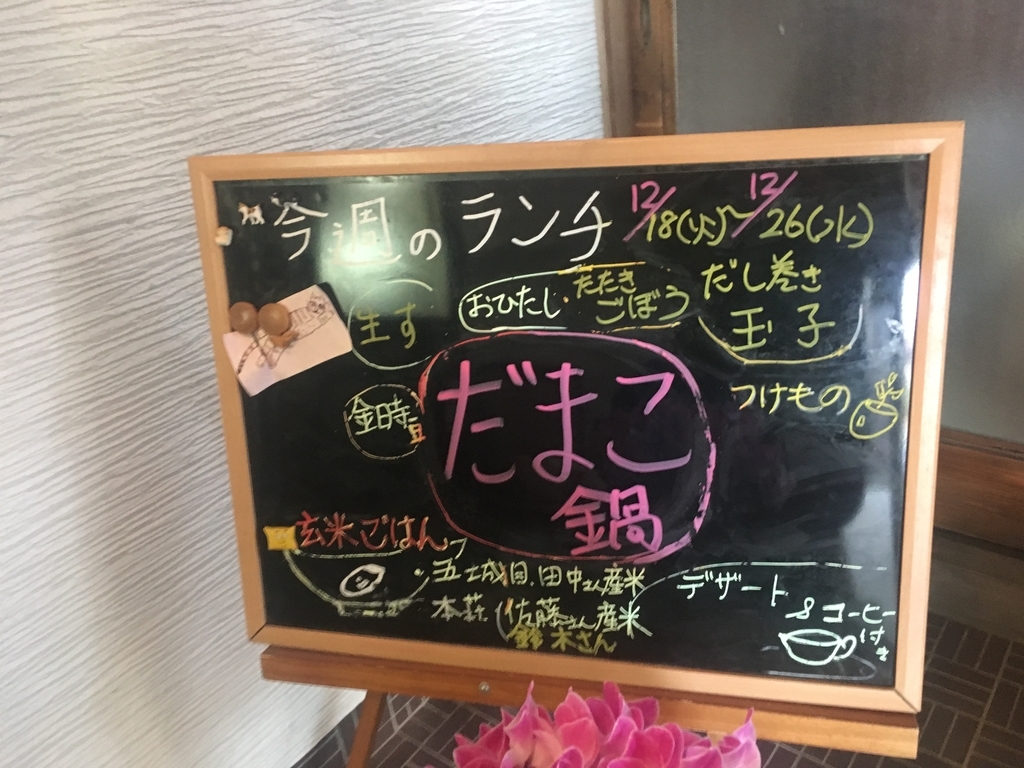 今週のランチ 12/18(火)~12/26(水)
生す
おひたし・たたきごぼう
だし巻き
玉子
金時豆
だまこ
鍋
つけもの
玄米ごはん
五城目 田中さん産米
本荘 佐藤さん産米
鈴木さん
デザート
&コーヒー
付き